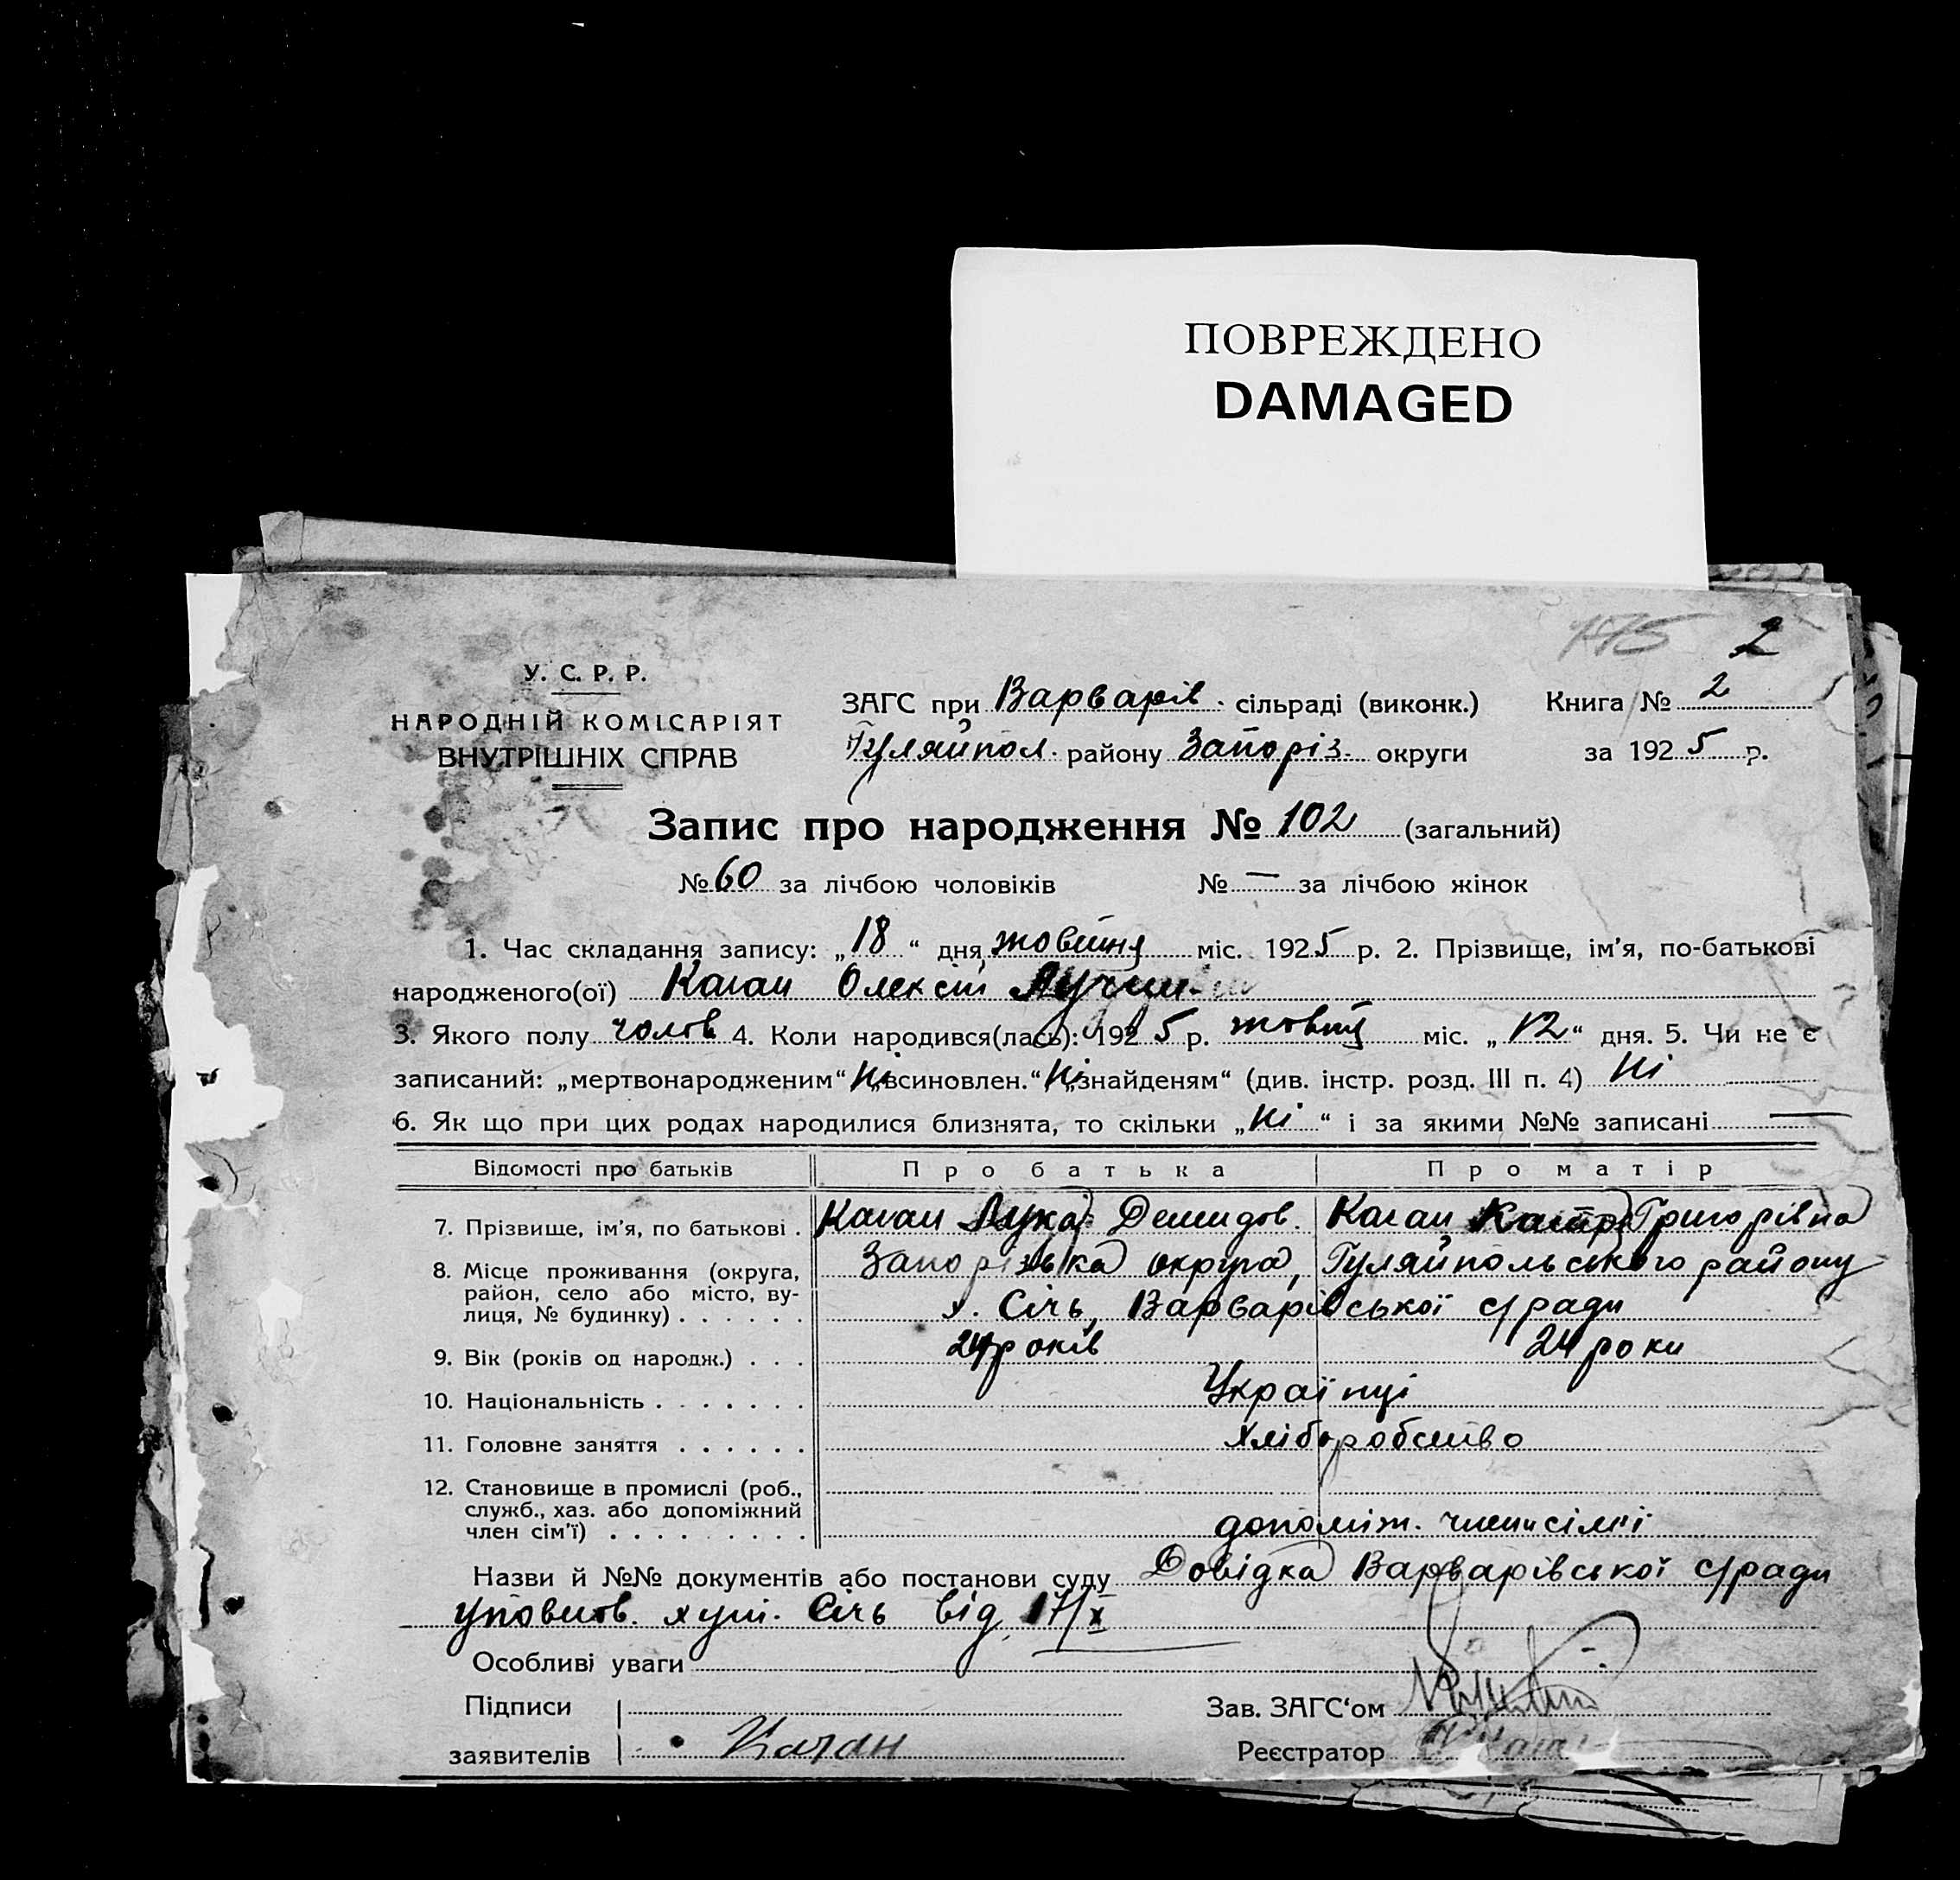 ПОВРЕЖДЕНО
DAMAGED
2
У. С. Р. Р.
НАРОДНІЙ КОМІСАРІЯТ
ВНУТРІШНІХ СПРАВ
ЗАГС при Варварів. сільраді (виконк.) Книга № 2
Гуляйпол. району Запоріз. округи за 1925 р.
Запис про народження № 102 (загальний)
№ 60 за лічбою чоловіків № — за лічбою жінок
1. Час складання запису: „18“ дня жовтня міс. 1925 р. 2. Прізвище, ім’я, по-батькові
народженого(ої) Каган Олексій
3. Якого полу чолов 4. Коли народився(лась): 1925 р. жовтня міс. „12“ дня. 5. Чи не є
записаний: „мертвонародженим“ Ні „всиновлен.“ Ні „знайденям“ (див. інстр. розд. III п. 4) Ні
6. Як що при цих родах народилися близнята, то скільки „Ні“ і за якими №№ записані —
Відомості про батьків Про батька Про матір
7. Прізвище, ім’я, по батькові . Каган Лука Демидов. Каган Катр Григорівна
8. Місце проживання (округа, район, село або місто, вулиця, № будинку) . . . . . . Запорізька округа, Гуляйпольського району
х. Січь, Варварівської с/ради
9. Вік (років од народж.) . . . 24 років 24 роки
10. Національність . . . . . . . Українці
11. Головне заняття . . . . . . Хліборобство
12. Становище в промислі (роб., служб., хаз. або допоміжний член сім’ї) . . . . . . . . . допоміж. член сімї
Назви й №№ документів або постанови суду Довідка Варварівської с/ради
уповнов. хут. Січь від 17/X
Особливі уваги
Підписи
заявителів Каган
Зав. ЗАГС‘ом
Реєстратор